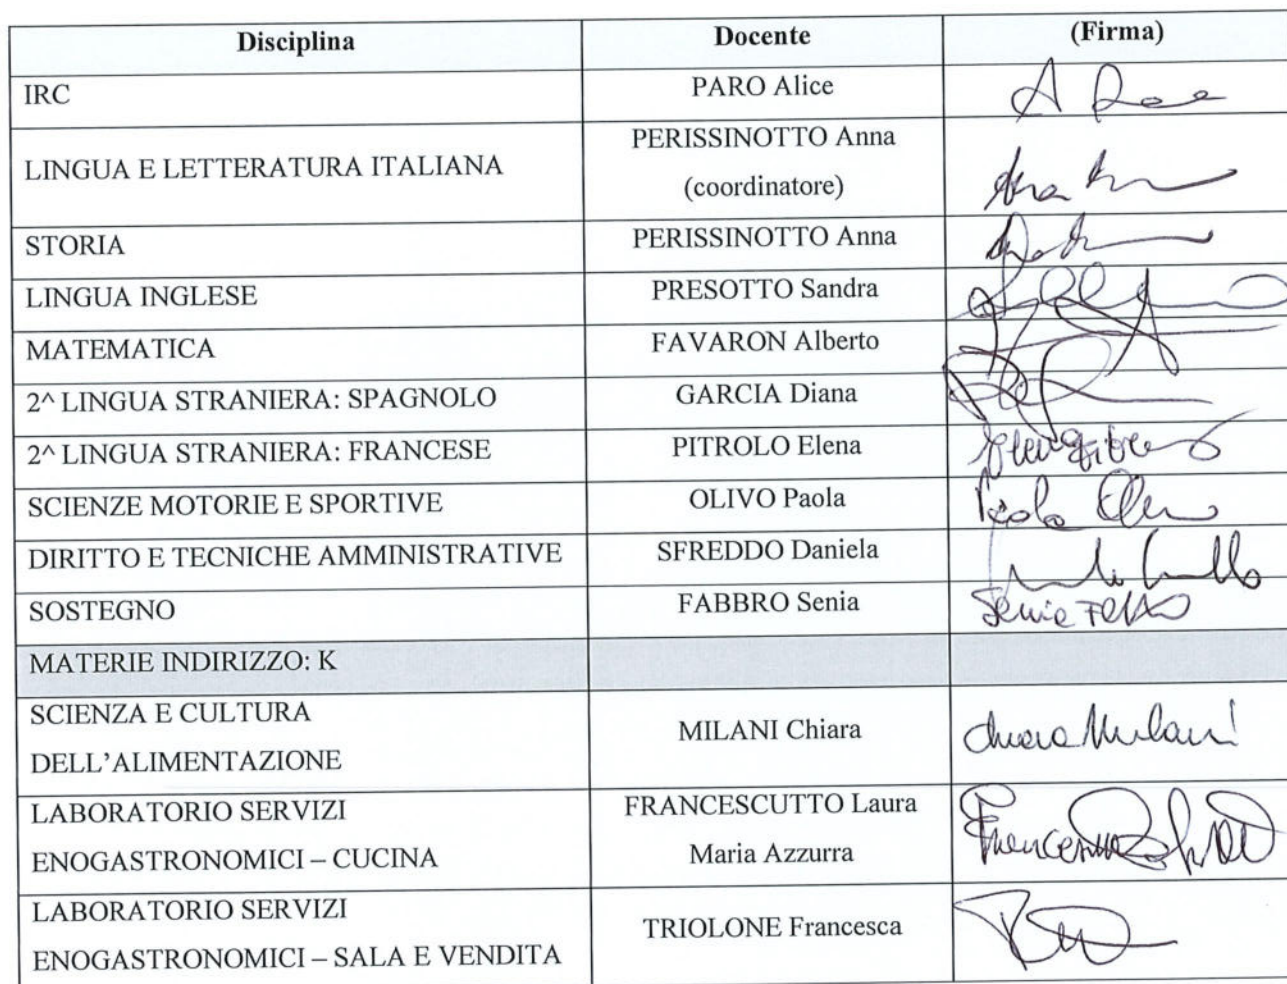 Disciplina Docente (Firma)
IRC PARO Alice
LINGUA E LETTERATURA ITALIANA PERISSINOTTO Anna
(coordinatore)
STORIA PERISSINOTTO Anna
LINGUA INGLESE PRESOTTO Sandra
MATEMATICA FAVARON Alberto
2^ LINGUA STRANIERA: SPAGNOLO GARCIA Diana
2^ LINGUA STRANIERA: FRANCESE PITROLO Elena
SCIENZE MOTORIE E SPORTIVE OLIVO Paola
DIRITTO E TECNICHE AMMINISTRATIVE SFREDDO Daniela
SOSTEGNO FABBRO Senia
MATERIE INDIRIZZO: K
SCIENZA E CULTURA
DELL'ALIMENTAZIONE MILANI Chiara Chiara Milani
LABORATORIO SERVIZI FRANCESCUTTO Laura
ENOGASTRONOMICI – CUCINA Maria Azzurra
LABORATORIO SERVIZI
ENOGASTRONOMICI – SALA E VENDITA TRIOLONE Francesca